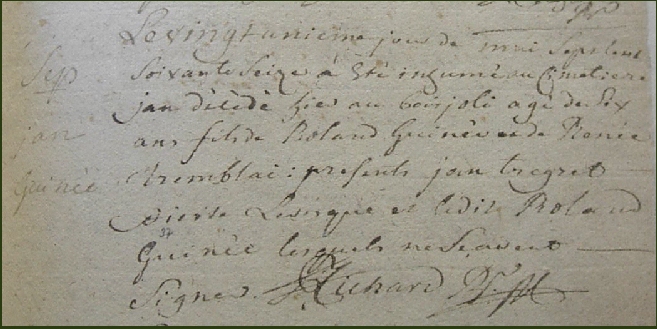 Le vingt unième jour de mai Sept cent
Sep
Soixante Seize à été inhumé au Cimetiere
jan décédé hier au boisjoli agé de six
jan
ans fils de Roland Guinée et de Renée
Guinée
tremblai : presents jan tregret
pierre Levêque et ledit Roland
Guinée lesquels ne Scavent
Signer. Richard